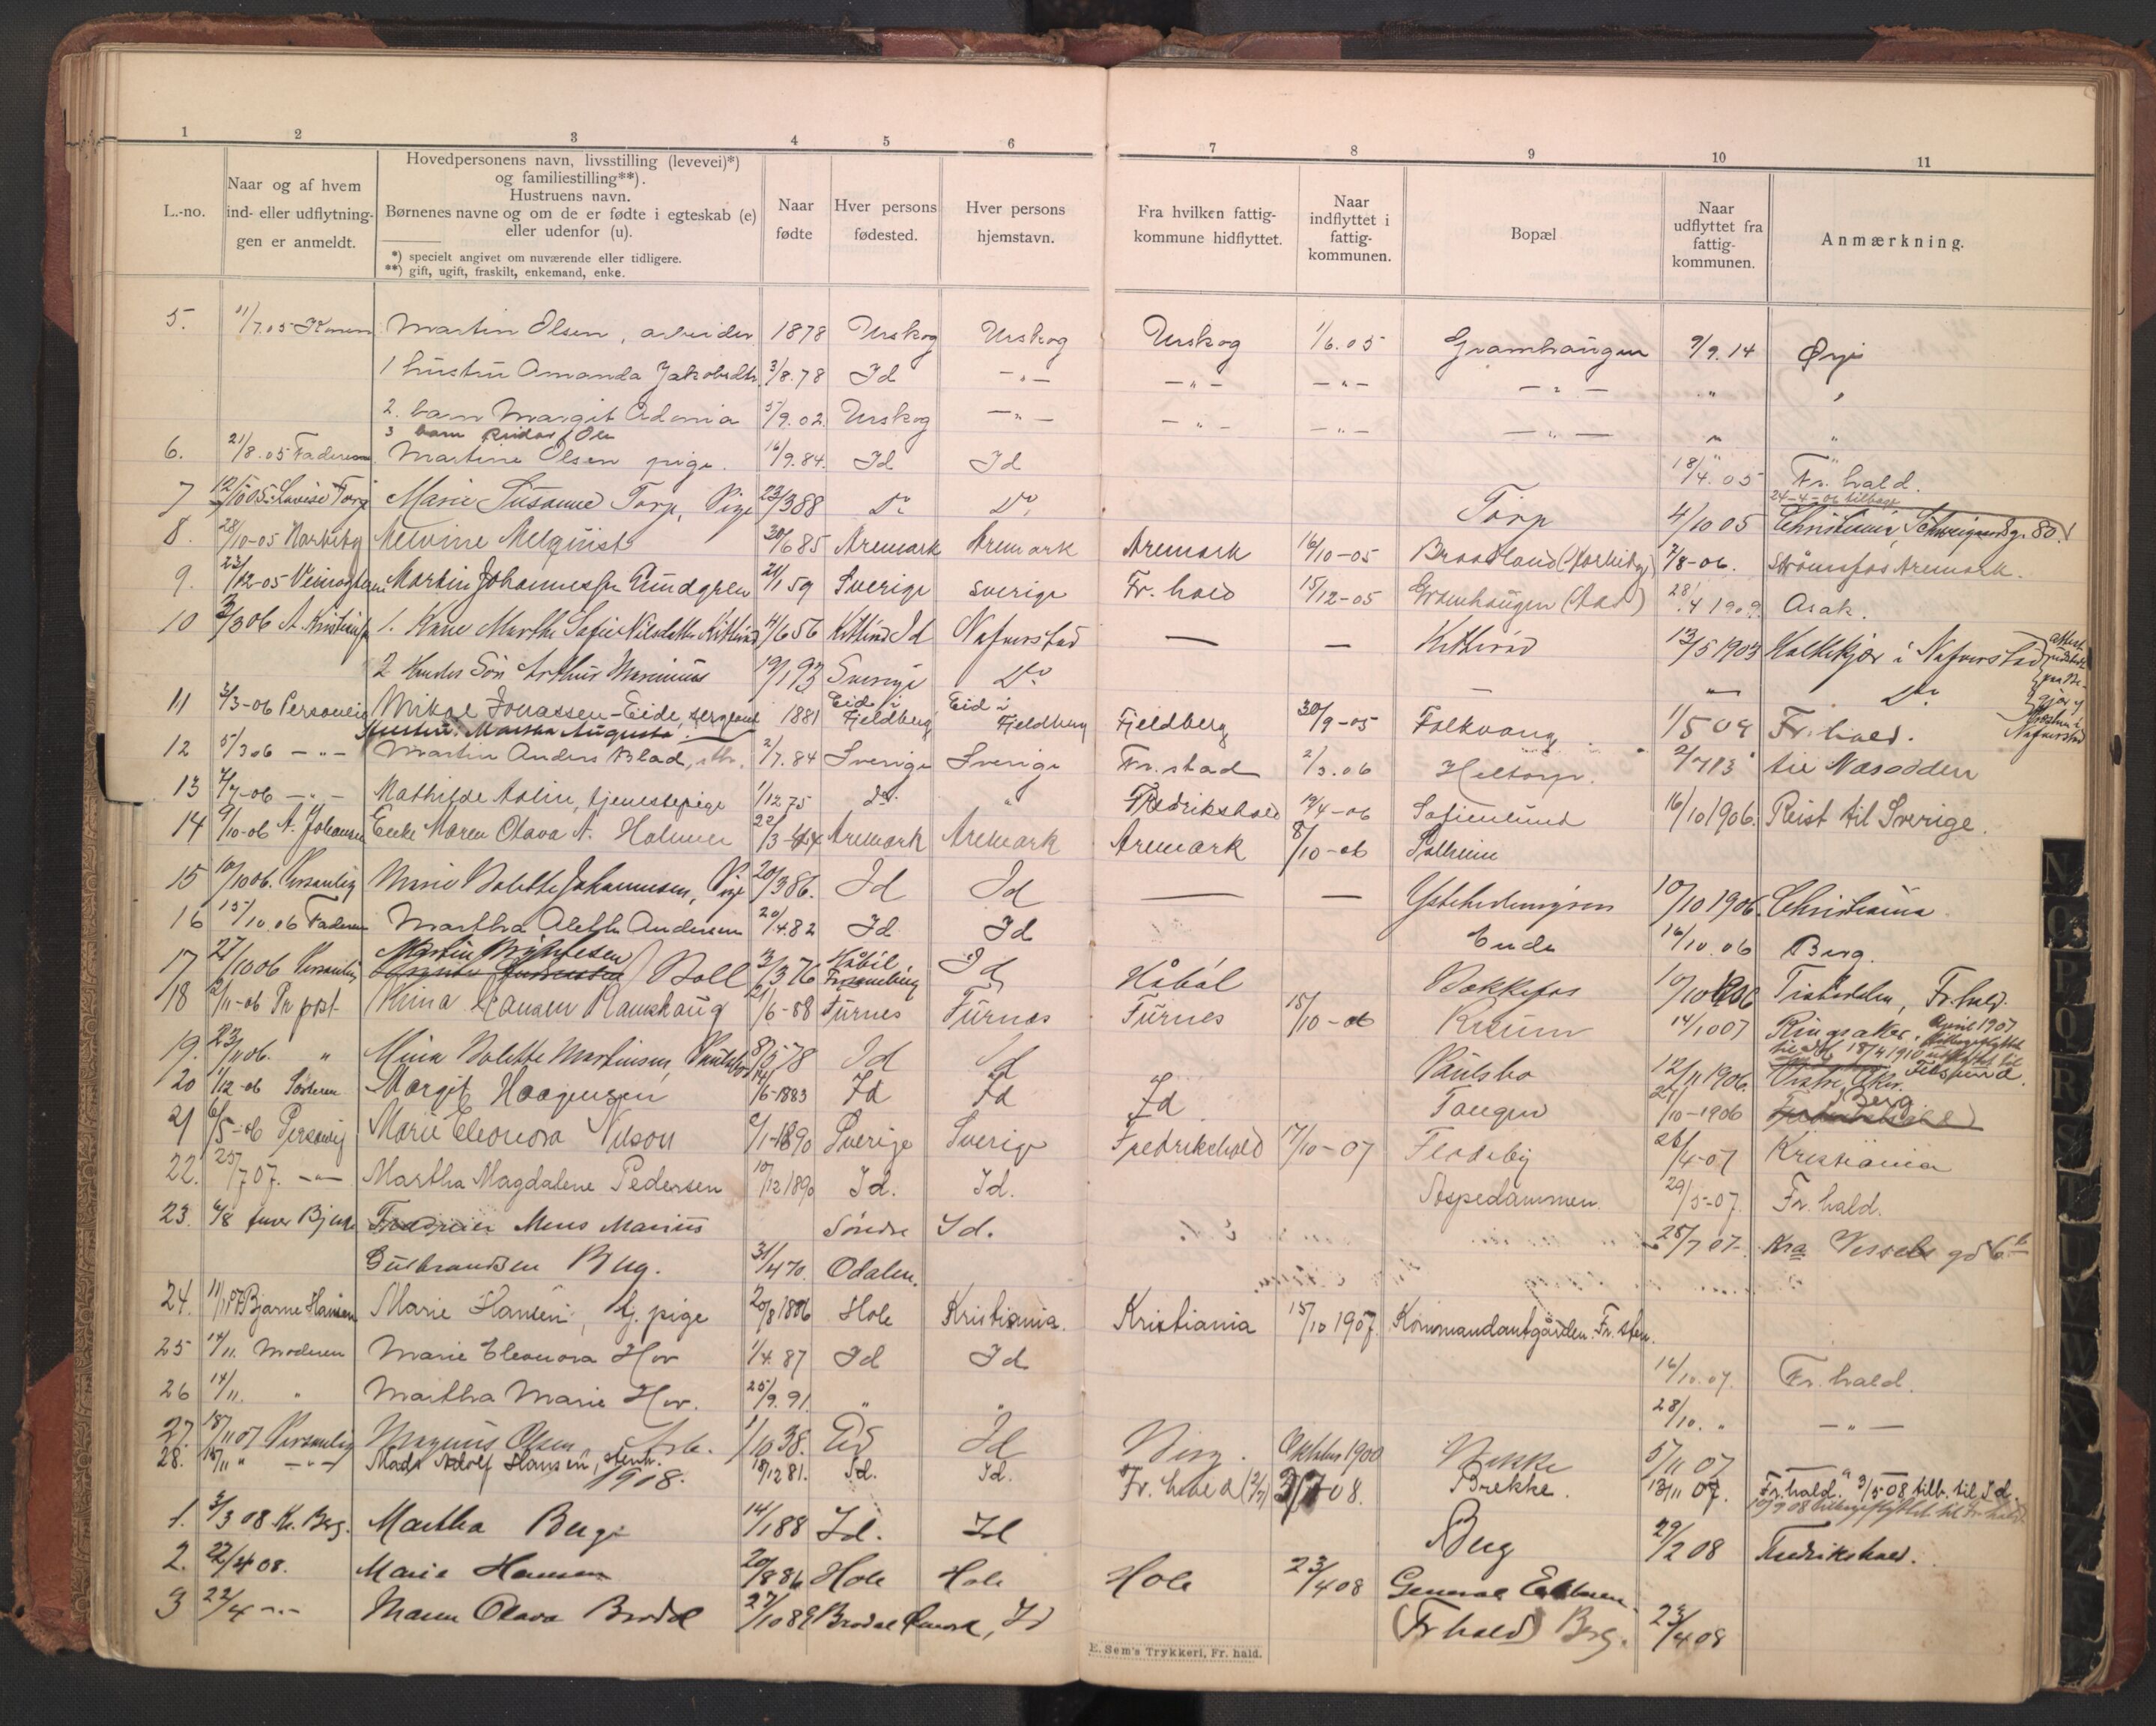 1 2 3 4 5 6 7 8 9 10 11
L.-no.
Naar og af hvem ind- eller udflytningen er anmeldt.
Hovedpersonens navn, livsstilling (levevei)*)
og familiestilling**).
Hustruens navn.
Børnenes navne og om de er fødte i egteskab (e)
eller udenfor (u).
*) specielt angivet om nuværende eller tidligere.
**) gift, ugift, fraskilt, enkemand, enke.
Naar fødte
Hver persons fødested.
Hver persons hjemstavn.
Fra hvilken fattigkommune hidflyttet.
Naar indflyttet i fattigkommunen.
Bopæl
Naar udflyttet fra fattigkommunen.
Anmærkning.
5. 11/7.05 Konen Martin Olsen, arbeider 1878 Urskog Urskog Urskog 1/6.05 Gramhaugen 9/9.14 Ørje
1 hustru Amanda Jakobsdtr. 3/8.78 Id -"- -"- -"- -"- "
2. barn Margit Adonia 5/9.02 Urskog -"- -"- -"- -"- " "
3 barn Reidar Ole
6. 21/8.05 Faderen Martine Olsen pige. 16/9.84. Id Id 18/4.05 Fr. hald.
7 12/10 05 Lovise Torp Marie Susanne Torp, Pige 23/3 88 Do Do Torp 4/10 05 Christiania, Schweigaardsg. 80.
24-4-06 tilbage
8. 28/10-05 Melvine Melquist 30/6 85 Aremark Aremark Aremark 16/10-05 Braatland 7/8-06. Strømsfos Aremark.
9. 23/12-05 Martin Johannessen Lundgren 21/1 59 Sverige Sverige Fr. hald 15/12-05 Gramhaugen 28/4 1909 Asak.
10 2/3 06 A. Kristiansen 1. Kone Marthe Sofie Nilsdatter Kittlerød 4/6 56 Id Nafverstad — — 13/5 1903 i Nafverstad
2 Hendes Søn Arthur Marinius 19/1 93 Sverige Do — " Do
11 3/3-06 Personlig Mikal Jonassen-Eide, sergeant 1881 Eid i Fjeldberg Eid i Fjeldberg Fjeldberg 30/9-05 Folkvang 1/5 09 Fr. hald.
Hustru: Marska Augusta
12 5/3 06 -"- Martin Anders Blad, 2/7.84 Sverige Sverige Fr. stad 2/3.06 Heltorp 2/7 13 til Næsodden
13 4/7-06 -"- Mathilde Aolin, tjenestepige 1/12 75 do. " Fredrikshald 19/4-06 Sofienlund 16/10 1906. Reist til Sverige.
14 9/10-06 A. Johansen Enke Maren Olava A. Holmen 22/3-44 Aremark Aremark Aremark 8/10-06 Solheim
15 10/10 06. Personlig Marie Bolette Johannesen, Pige 20/3 86. Id Id — — 10/10 1906. Christiania
16 15/10.06 Faderen Martha Alette Andersen 20/4.82 Id Id Ende 16/10.06 Berg.
17 27/10 06 Personlig Martin Boll 3/3 76 Håbøl Id Håbøl Bakkefos 10/10 1906 Tistedalen, Fr.hald.
18 2/11-06 Pr post Kima Hansen Ramshaug 21/6-88 Furnes Furnes Furnes 15/10-06 14/10 07 Ringsaker, April 1907
19. 23/11 06. " Mina Bolette Martinsen, Paulsbo 8/5 78 Id Id Paulsbo 12/11 1906. Vestre Aker.
20 1/12-06 Søsteren Margit Haagensen 14/6-1883 Id Id Id Tangen 27/10-1906 Berg
21 6/5-06 Personlig Marie Eleonora Nilson 9/1-1890 Sverige Sverige Fredrikshald 17/10-07 Flodeby 26/4-07 Kristiania
22. 25/7 07. -"- Martha Magdalene Pedersen 10/12 1890 Id. Id. Aspedammen. 29/5-07. Fr. hald.
23. 6/8 Mens Marius Søndre Id. 25/7 07.
Gulbrandsen Berg. 31/4 70. Odalen.
24. 11/11 07 Bjarne Hansen Marie Hansen, tj. pige 20/8 1886 Hole Kristiania. Kristiania 15/10 1907. Kommandantgården. Fr. sten.
25 14/11. Moderen Marie Eleonora Hov 1/4.87 Id Id 16/10.07. Fr. hald.
26 14/11. " Martha Marie Hov. 25/9.91. " " 28/10. " -"-
27. 18/11 07 Personlig Magnus Olsen, Arb. 1/10 38. Id Id Berg. Oktober 1900 Brekke 5/11 07 "
28. 18/11 " -"- Mads Adolf Hansen, stenh. 18/12 81. Id. Id. Fr. hald Brekke. 13/11 07. Fr.hald. 3/5-08 tilb. til Id.
10/9 08 tilbageflyttet til Fr. hald
1908.
1. 3/3 08 K. Berg. Martha Berg 14/1 88 Id. Id Berg 29/2 08 Fredrikshald.
2. 22/4 08. Marie Hansen 20/8 86 Hole Hole Hole 23/4 08 General
3 22/4 -"- Maren Olava Brodal 27/10 89 Brodal Id (Fr hald) Berg. 23/4 08
E. Sem's Trykkeri, Fr. hald.
N O P R S T U V W X Z